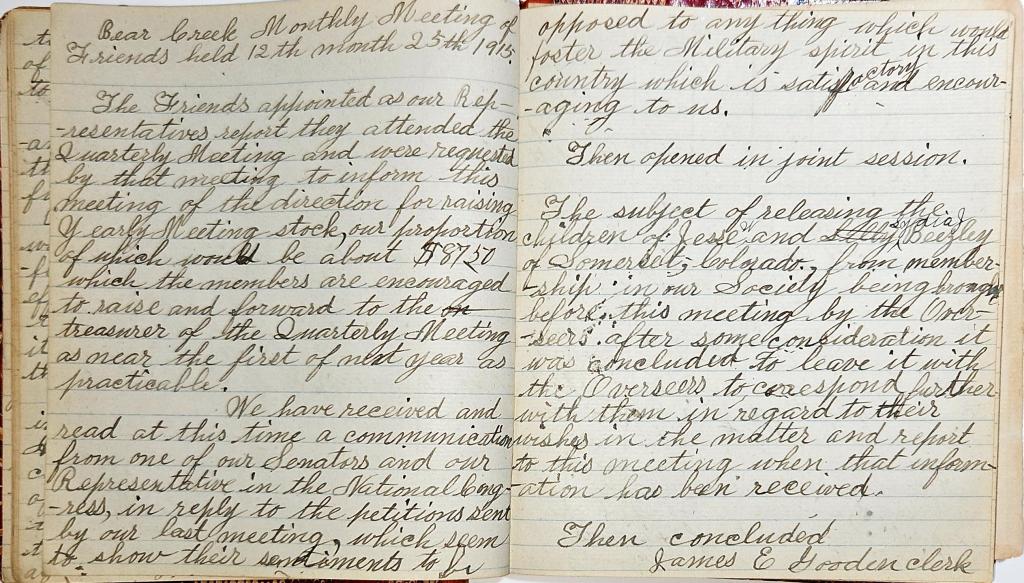 Bear Creek Monthly Meeting of
Friends held 12th month 25th 1915.
The Friends appointed as our Rep-
-resentatives report they attended the
Quarterly Meeting and were requested
by that meeting to inform this
meeting of the direction for raising
Yearly Meeting stock, our proportion
of which would be about $87.50
which the members are encouraged
to raise and forward to the on
treasurer of the Quarterly Meeting
as near the first of next year as
practicable.
We have received and
read at this time a communication
from one of our Senators and our
Representative in the National Cong-
-ress, in reply to the petitions sent
by our last meeting, which seem
to show their sentiments to
opposed to any thing which would
foster the Military spirit in this
country which is satisfactory and encour-
-aging to us.
Then opened in joint session.
The subject of releasing the
children of Jesse and Sophia Beezley
of Somerset, Colorado, from member-
-ship in our Society being brought
before this meeting by the Over-
-seers after some consideration it
was concluded to leave it with
the Overseers to correspond further
with them in regard to their
wishes in the matter and report
to this meeting when that inform-
-ation has been received.
Then concluded
James E Gooden clerk